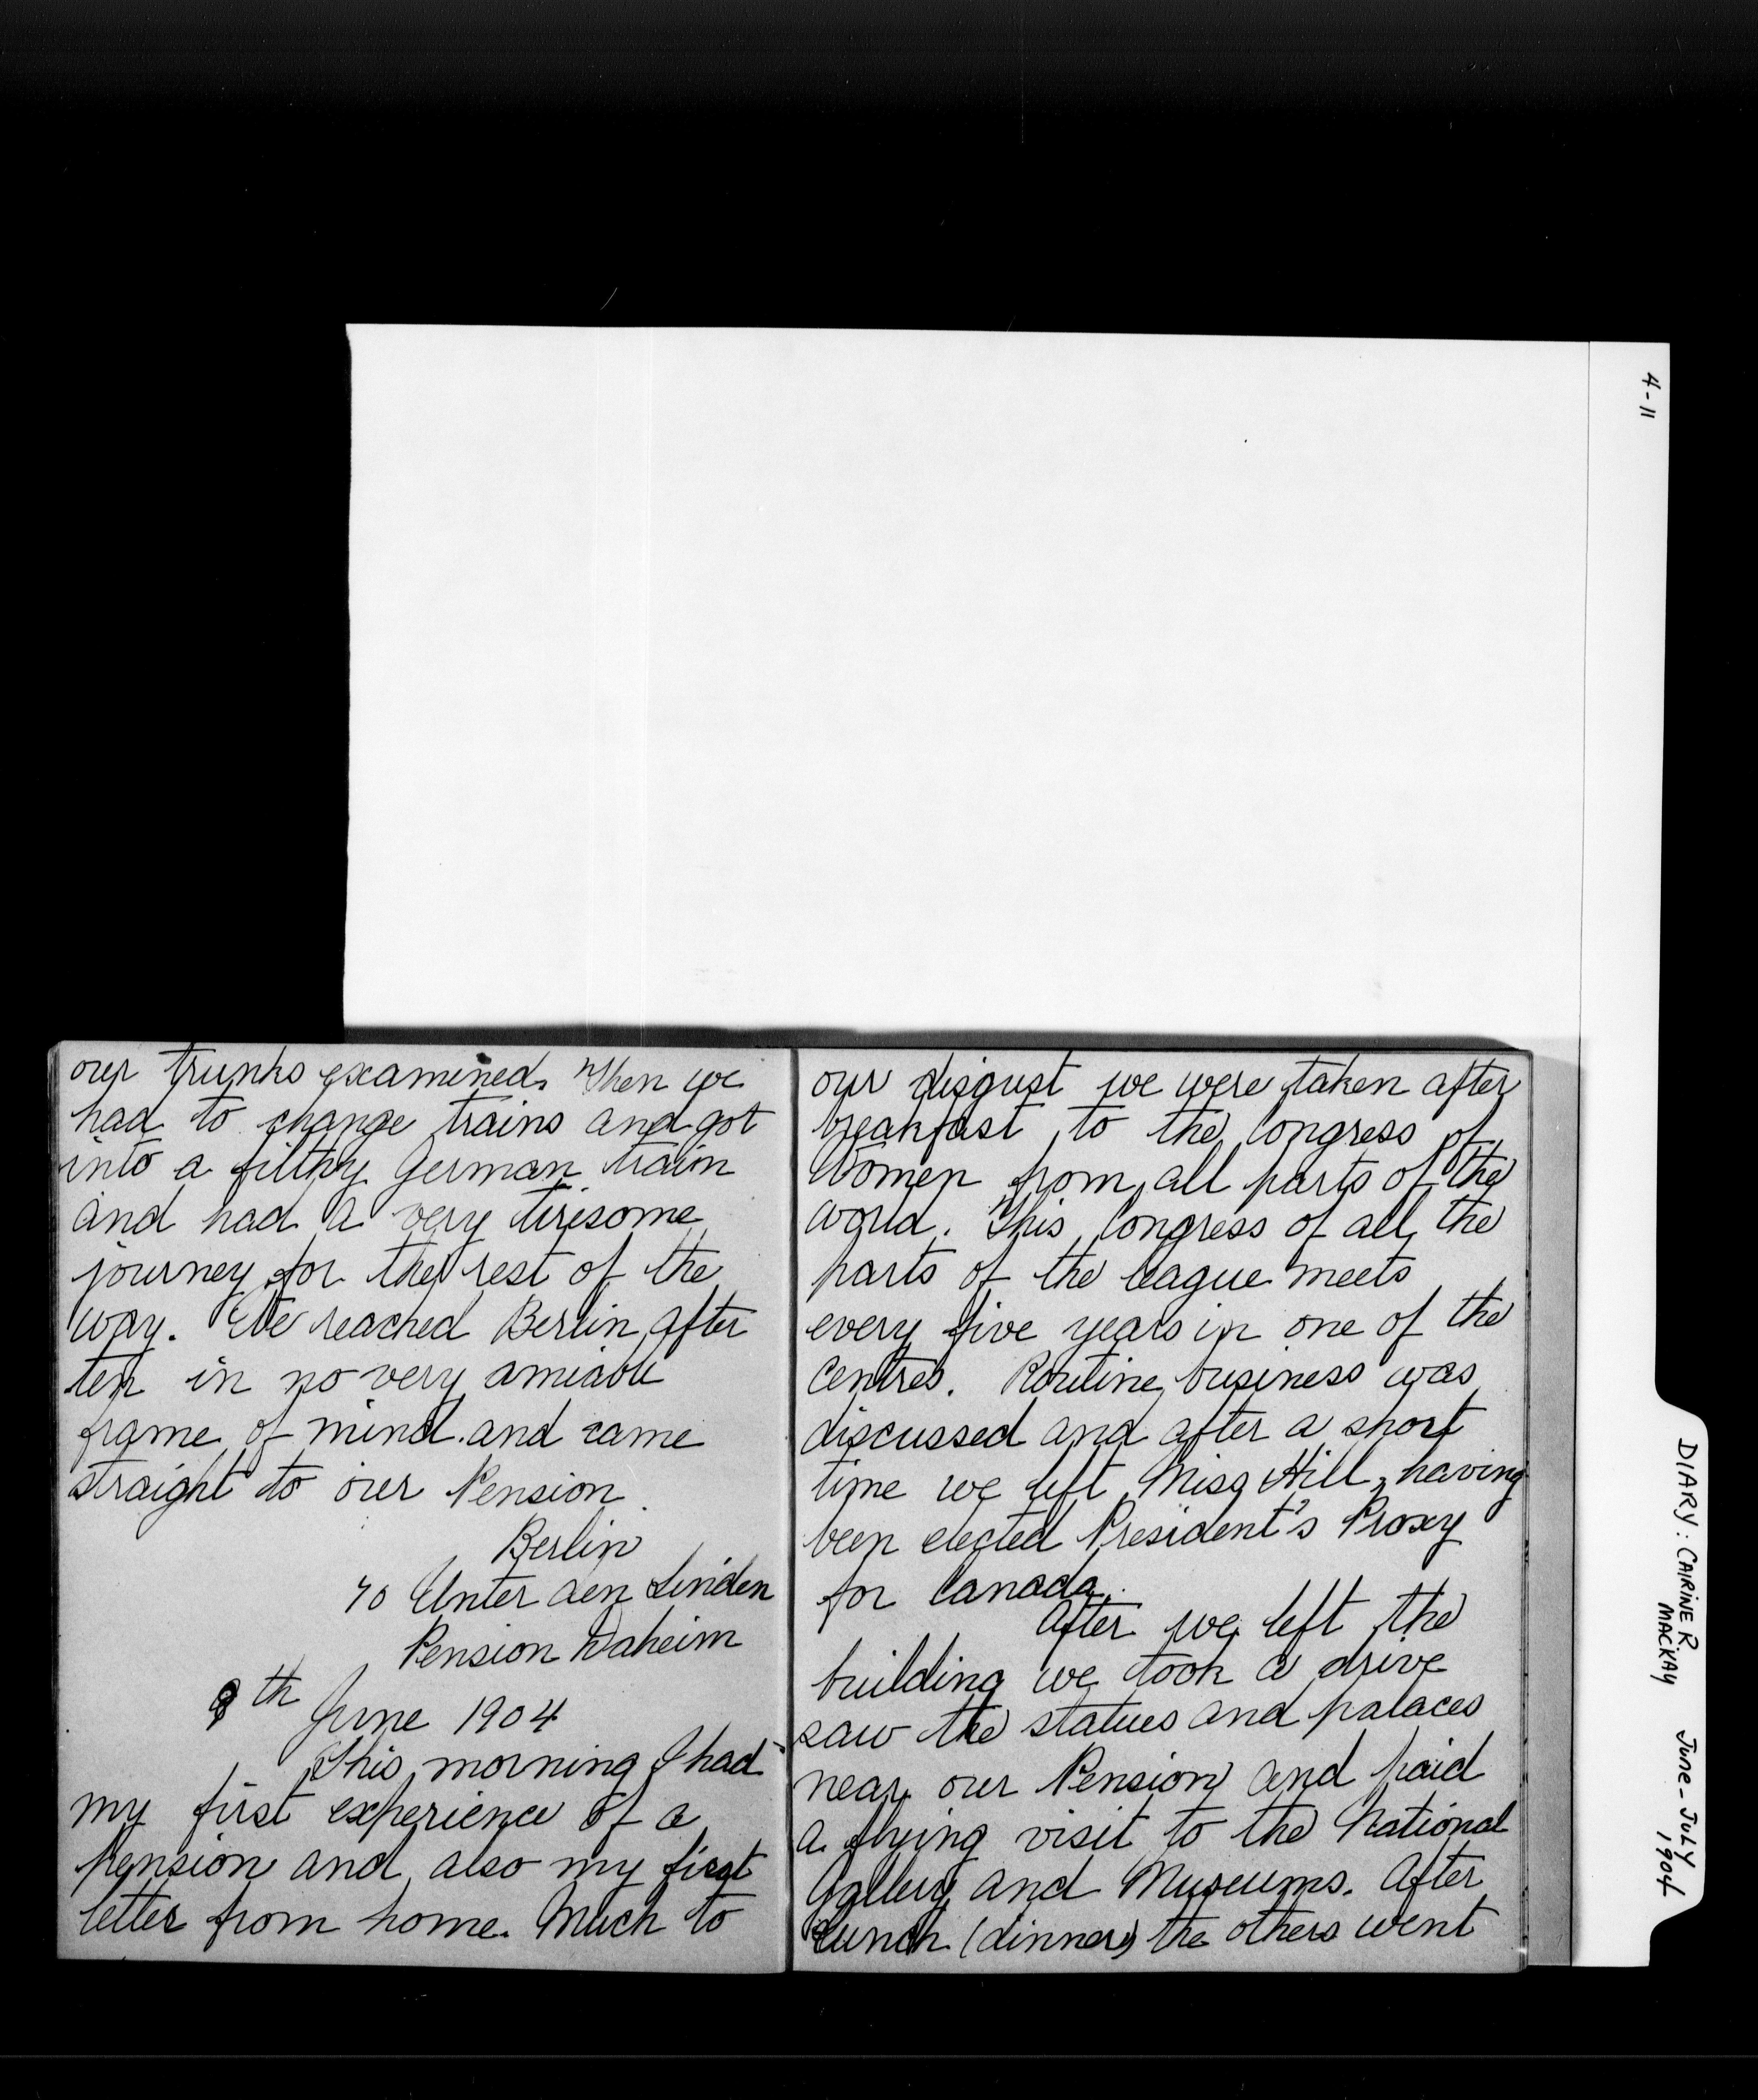 our trunks examined. Then we
had to change trains and got
into a filthy German train
and had a very tiresome
journey for the rest of the
way. We reached Berlin after
ten in no very amiable
frame of mind and came
straight to our Pension.
Berlin
70 Unter den Linden
Pension Daheim
9th June 1904
This morning I had
my first experience of a
Pension and also my first
letter from home. Much to
our disgust we were taken after
breakfast to the Congress of
Women from all parts of the
world. This Congress of all the
parts of the league meets
every five years in one of the
Centres. Routine business was
discussed and after a short
time we left Miss Hill, having
been elected President's Proxy
for Canada.
After we left the
building we took a drive
saw the statues and palaces
near our Pension and paid
a flying visit to the National
Gallery and Museums. After
lunch (dinner) the others went
4-11
DIARY: CAIRINE R. MACKAY
June - July 1904